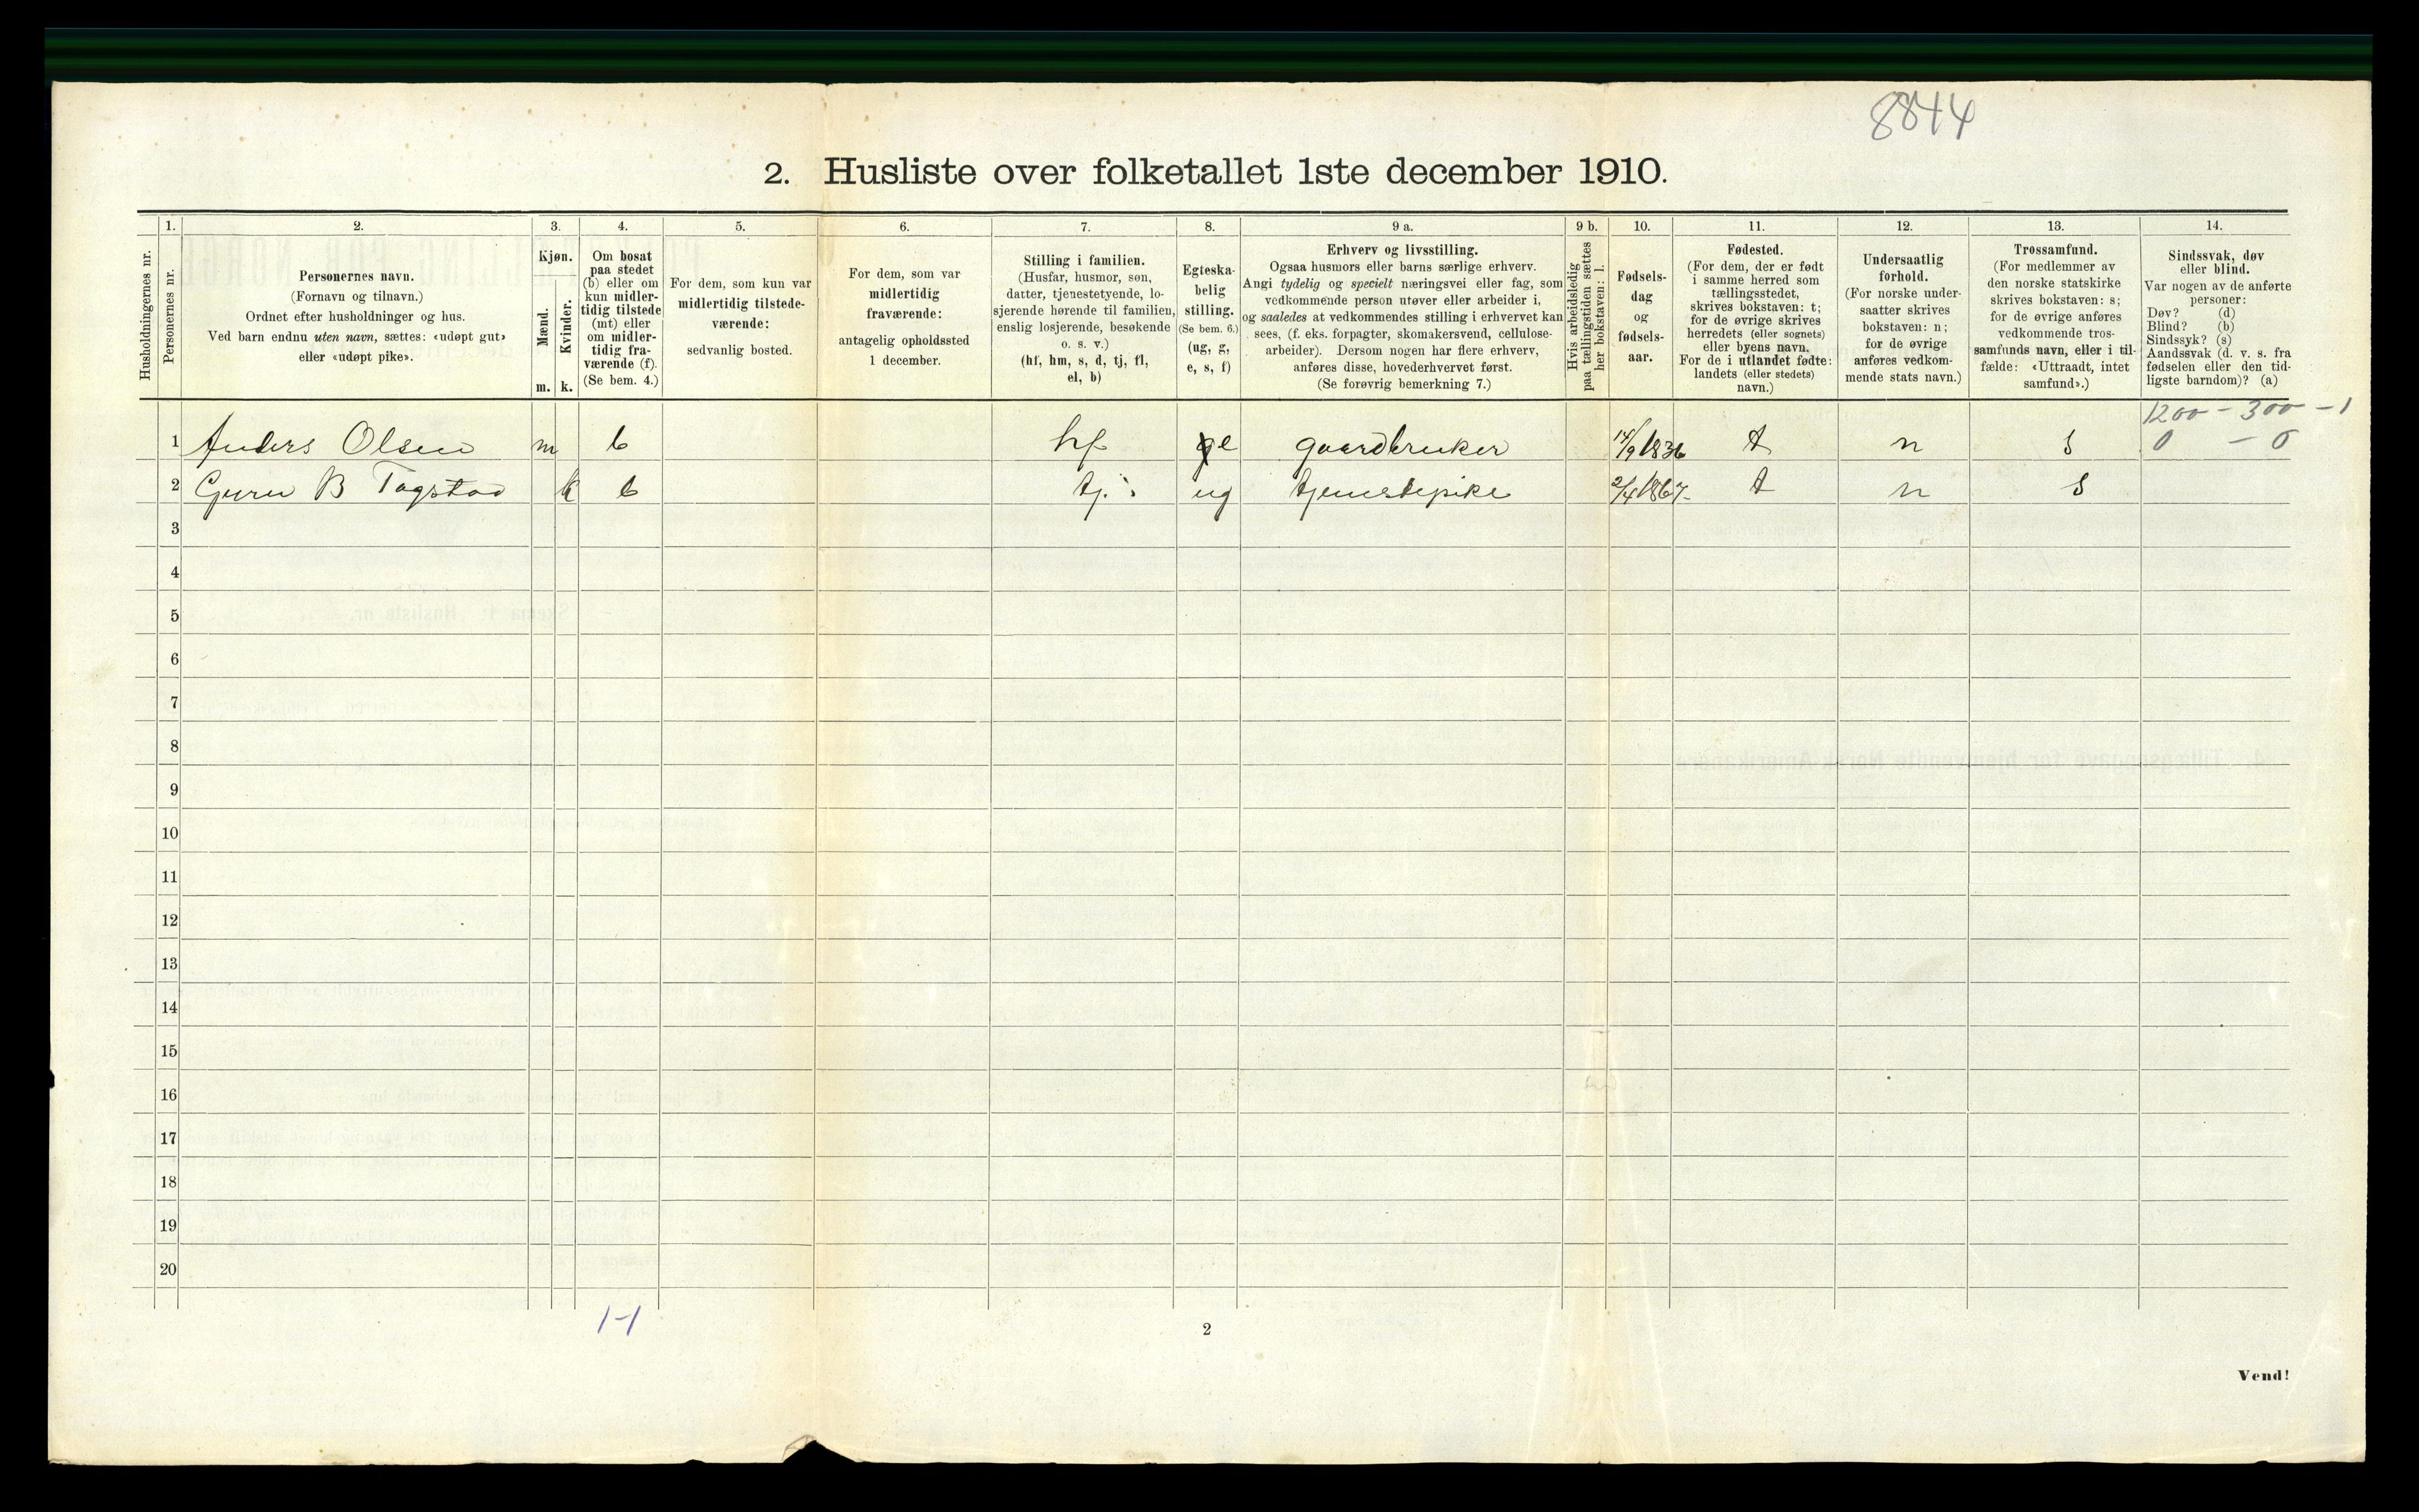 8844
2. Husliste over folketallet 1ste december 1910.
Husholdningernes nr.
1.
Personernes nr.
2.
Personernes navn.
(Fornavn og tilnavn.)
Ordnet efter husholdninger og hus.
Ved barn endnu uten navn, sættes: «udøpt gut»
eller «udøpt pike».
3.
Kjøn.
Mænd.
Kvinder.
m. k.
4.
Om bosat
paa stedet
(b) eller om
kun midler-
tidig tilstede
(mt) eller
om midler-
tidig fra-
værende (f).
(Se bem. 4.)
5.
For dem, som kun var
midlertidig tilstede-
værende:
sedvanlig bosted.
6.
For dem, som var
midlertidig
fraværende:
antagelig opholdssted
1 december.
7.
Stilling i familien.
(Husfar, husmor, søn,
datter, tjenestetyende, lo-
sjerende hørende til familien,
enslig losjerende, besøkende
o. s. v.)
(hf, hm, s, d, tj, fl,
el, b)
8.
Egteska-
belig
stilling.
(Se bem. 6.)
(ug, g,
e, s, f)
9 a.
Erhverv og livsstilling.
Ogsaa husmors eller barns særlige erhverv.
Angi tydelig og specielt næringsvei eller fag, som
vedkommende person utøver eller arbeider i,
og saaledes at vedkommendes stilling i erhvervet kan
sees, (f. eks. forpagter, skomakersvend, cellulose-
arbeider). Dersom nogen har flere erhverv,
anføres disse, hovederhvervet først.
(Se forøvrig bemerkning 7.)
9 b.
Hvis arbeidsledig
paa tællingstiden sættes
her bokstaven: l.
10.
Fødsels-
dag
og
fødsels-
aar.
11.
Fødested.
(For dem, der er født
i samme herred som
tællingsstedet,
skrives bokstaven: t;
for de øvrige skrives
herredets (eller sognets)
eller byens navn.
For de i utlandet fødte:
landets (eller stedets)
navn.)
12.
Undersaatlig
forhold.
(For norske under-
saatter skrives
bokstaven: n;
for de øvrige
anføres vedkom-
mende stats navn.)
13.
Trossamfund.
(For medlemmer av
den norske statskirke
skrives bokstaven: s;
for de øvrige anføres
vedkommende tros-
samfunds navn, eller i til-
fælde: «Uttraadt, intet
samfund».)
14.
Sindssvak, døv
eller blind.
Var nogen av de anførte
personer:
Døv? (d)
Blind? (b)
Sindssyk? (s)
Aandssvak (d. v. s. fra
fødselen eller den tid-
ligste barndom)? (a)
1200 - 300 - 1
1 Anders Olsen m b hf e gaardbruker 14/9 1836 t n s 0 - 0
2 Guru B Togstad k b tj. ug tjenestepike 2/4 1867 t n s
3
4
5
6
7
8
9
10
11
12
13
14
15
16
17
18
19
20
1-1
2
Vend!